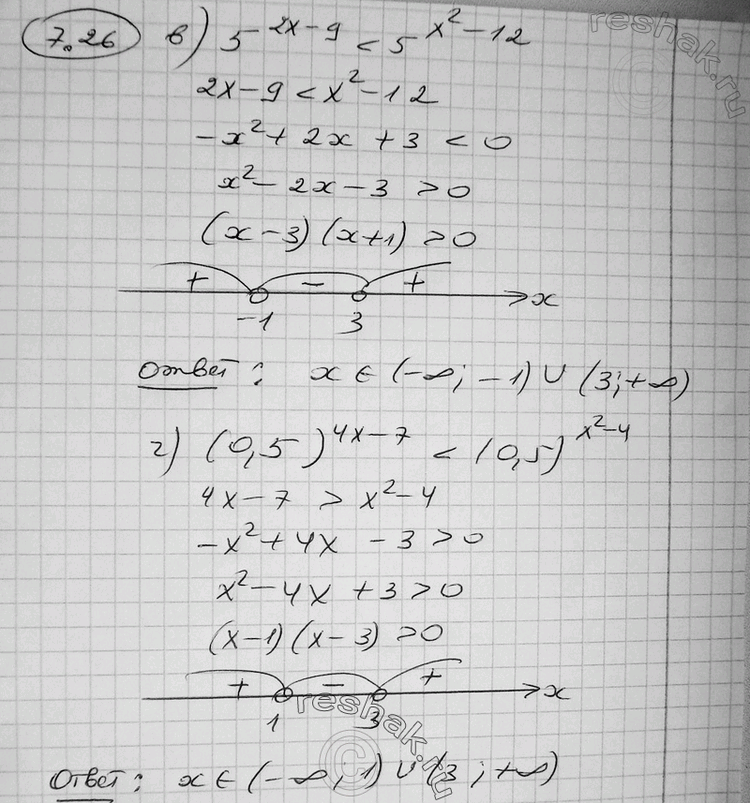 7.26 в) 5^{2x-9} < 5^{x^2-12}
2x-9 < x^2-12
-x^2+2x+3 < 0
x^2-2x-3 > 0
(x-3)(x+1) > 0
+ - + x
-1 3
Ответ: x ∈ (-∞; -1) ∪ (3; +∞)
г) (0,5)^{4x-7} < (0,5)^{x^2-4}
4x-7 > x^2-4
-x^2+4x-3 > 0
x^2-4x+3 > 0
(x-1)(x-3) > 0
+ - + x
1 3
Ответ: x ∈ (-∞; 1) ∪ (3; +∞)
reshak.ru
reshak.ru